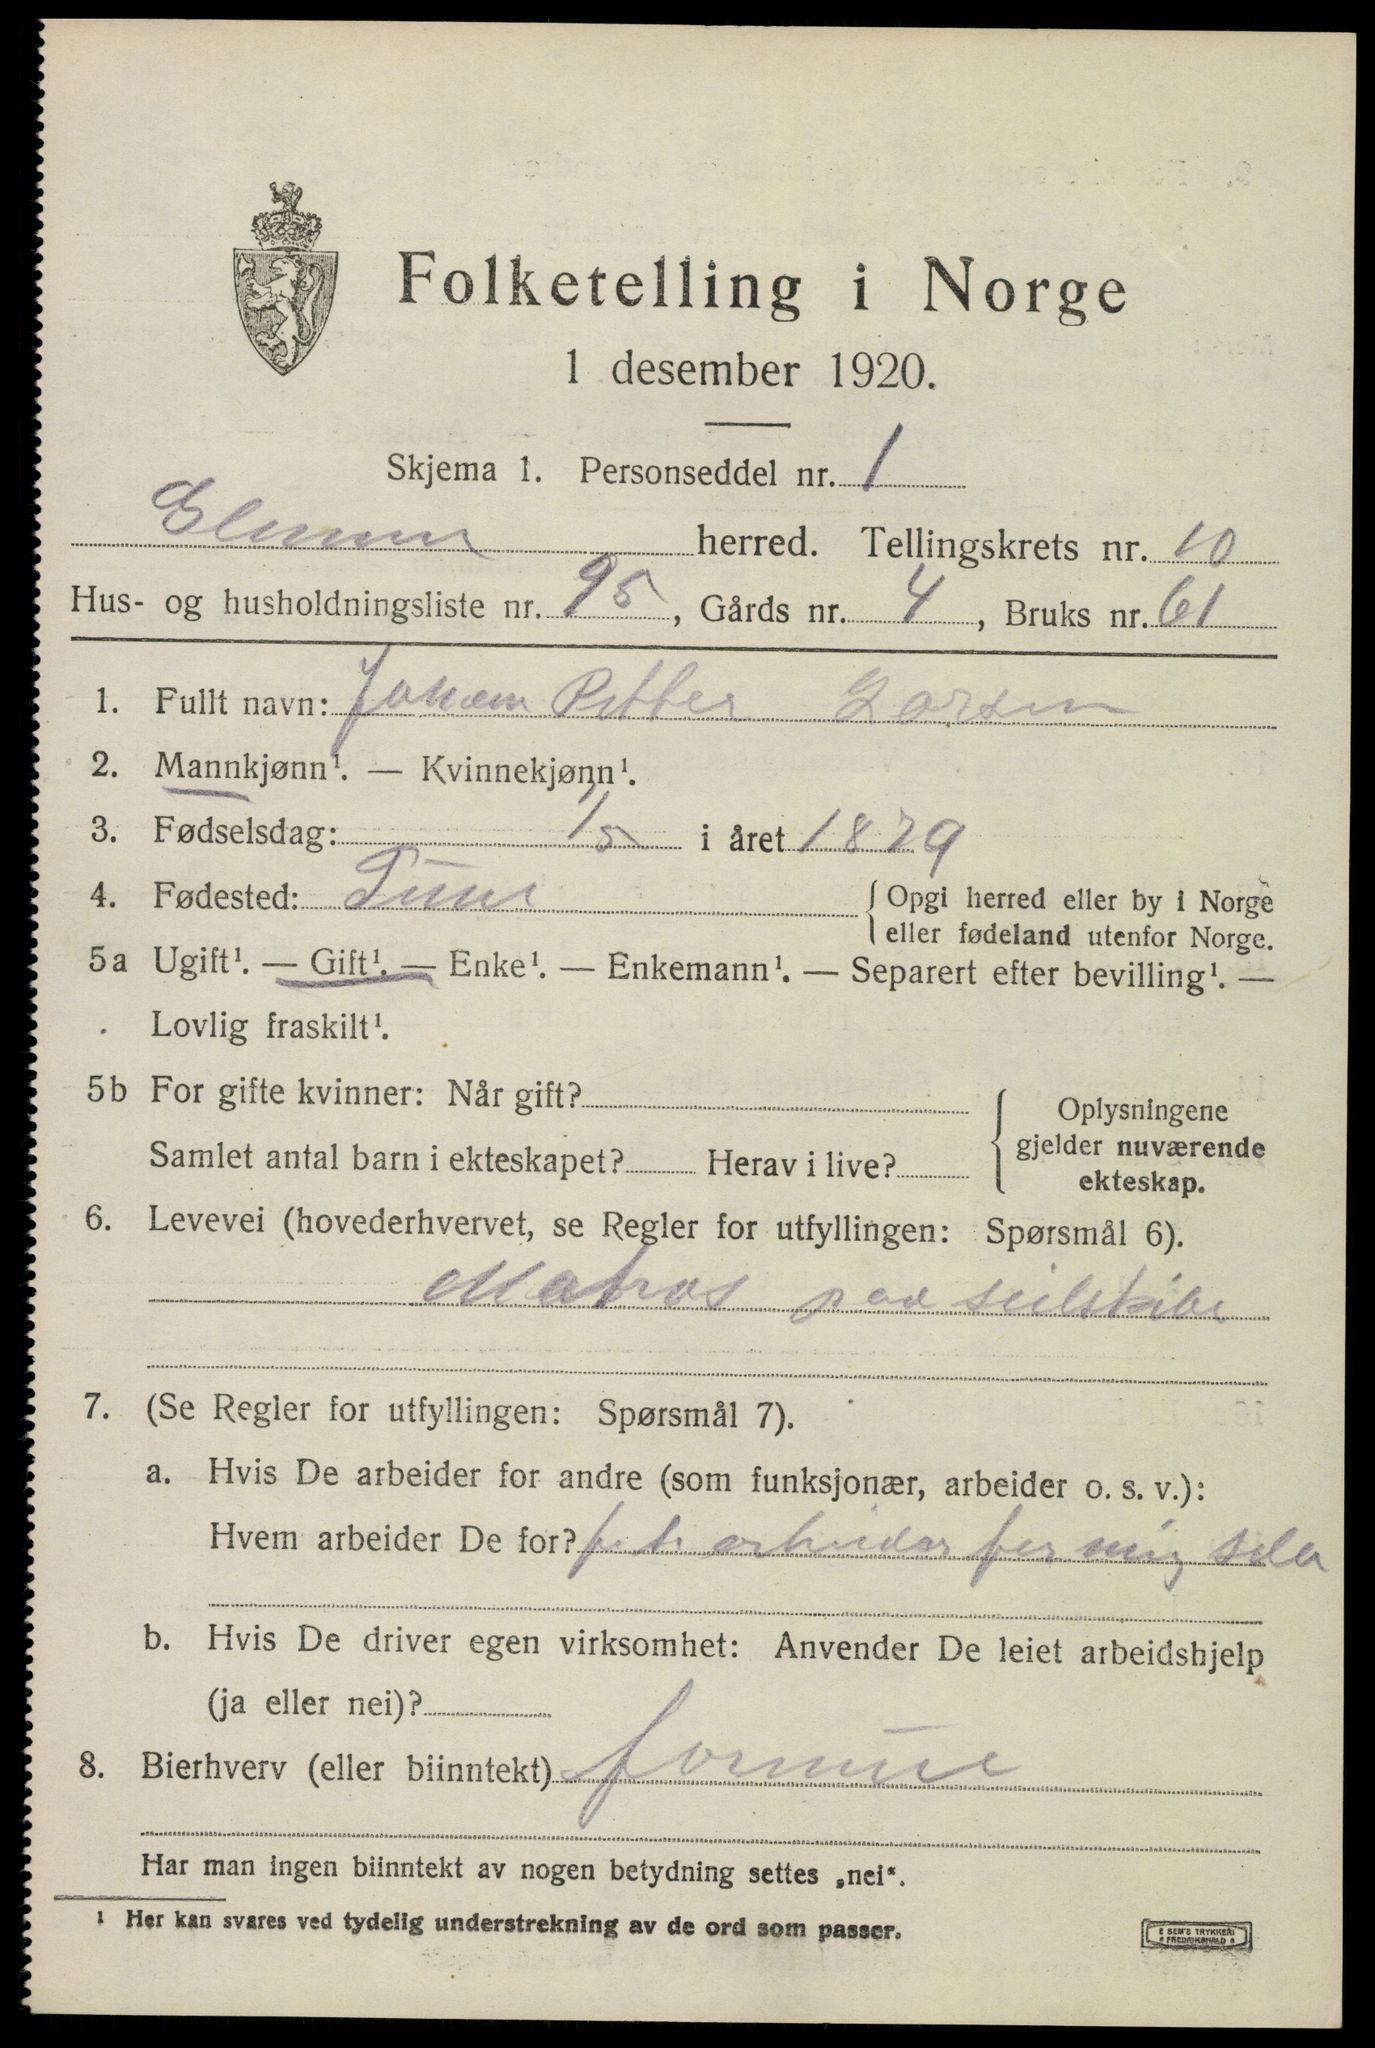 Folketelling i Norge
1 desember 1920.
Skjema 1. Personseddel nr. 1
Glemmen herred. Tellingskrets nr. 10
Hus- og husholdningsliste nr. 95, Gårds nr. 4, Bruks nr. 61
1. Fullt navn: Johan Petter Larsen
2. Mannkjønn¹. — Kvinnekjønn¹.
3. Fødselsdag: 1/5 i året 1879
4. Fødested: Tune { Opgi herred eller by i Norge
eller fødeland utenfor Norge.
5a Ugift¹. — Gift¹. — Enke¹. — Enkemann¹. — Separert efter bevilling¹. —
Lovlig fraskilt¹.
5b For gifte kvinner: Når gift? { Oplysningene
gjelder nuværende
Samlet antal barn i ekteskapet? Herav i live?
ekteskap.
6. Levevei (hovederhvervet, se Regler for utfyllingen: Spørsmål 6).
Matros paa seilskibe
7. (Se Regler for utfyllingen: Spørsmål 7).
a. Hvis De arbeider for andre (som funksjonær, arbeider o. s. v.):
Hvem arbeider De for? arbeider for mig
b. Hvis De driver egen virksomhet: Anvender De leiet arbeidshjelp
(ja eller nei)?
8. Bierhverv (eller biinntekt) formue
Har man ingen biinntekt av nogen betydning settes „nei“.
¹ Her kan svares ved tydelig understrekning av de ord som passer.
E SEM'S TRYKKERI
FREDRIKSHALD